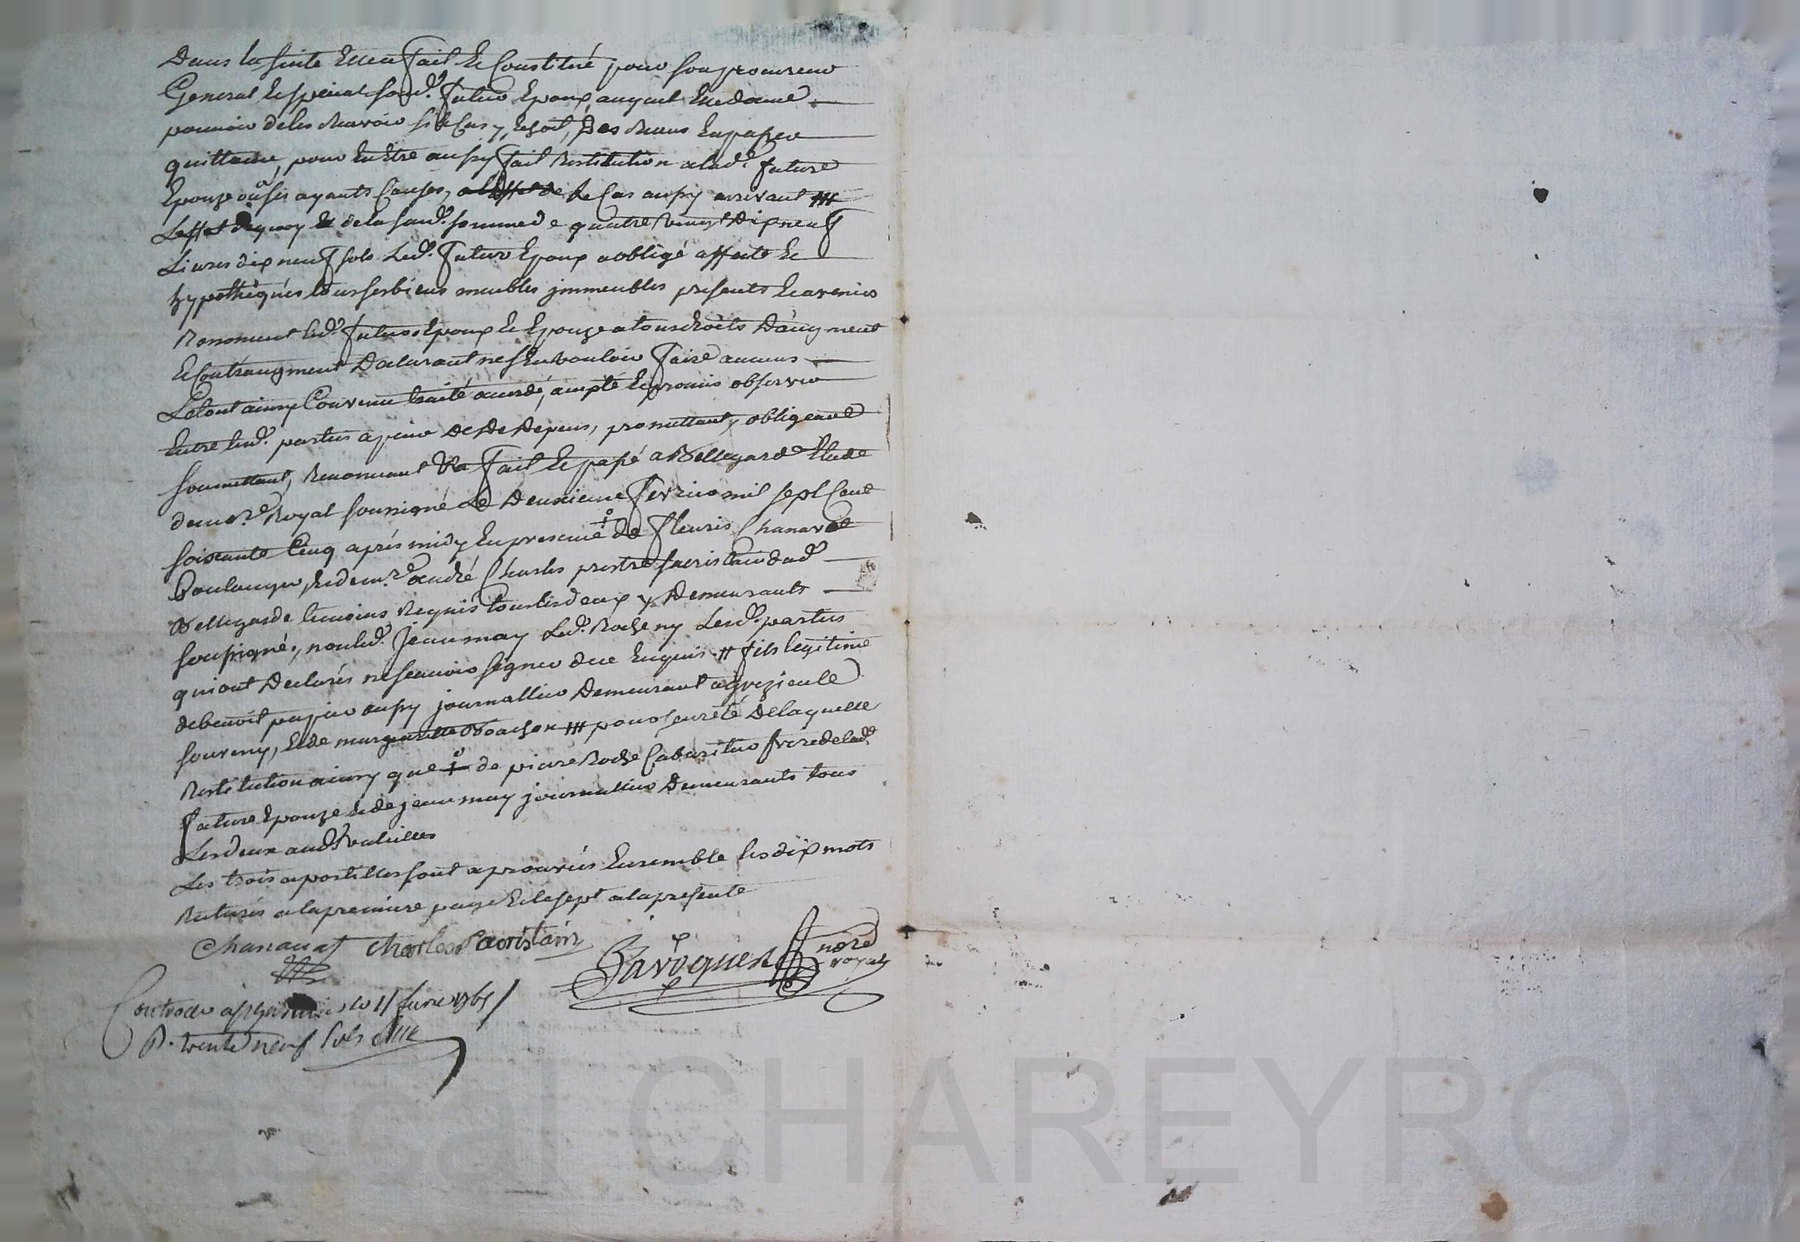 Dans la suite Elle a fait Et Constitué pour son procureur
General Et special sond.t futur Epoux auquel Elle donne
pouvoir de les Recevoir Et Des Biens En passer
quittance, pour En Etre aussy fait Restitution a lad.e future
Epouze ou à ses ayants Causes, a l'effet de le Cas aussy arrivant ///
L'effet dequoy Et de la susd. somme de quatre vingt Dix neuf
Livres dix neuf sols Led.t futur Epoux a obligé affecté Et
hypothéqués tous ses biens meubles immeubles presents Et avenir
Renoncent lesd.ts futurs Epoux Et Epouze a tous droits D'augment
Et Contraugment Declarant ne s'En vouloir faire aucuns
Le tout ainsy Convenu traité accordé, accepté Et promis observer
Entre lesd. parties a peine De Depens, promettant, obligeant
soumettant, Renoncant &a fait Et passé a Bellegarde Etude
du no.re Royal soussigné Le Deuxieme fevrier mil sept Cent
soixante Cinq après midy En presence de fleuris Chanavat
Boulanger, Et de m.re André Charles prestre sacristain dud.
Bellegarde temoins Requis tous les deux y Demeurants
soussignés, non led. Jean may Led. Roche ny Lesd. parties
qui ont Declarés ne scavoir signer de ce Enquis. // fils legitime
de benoit aussy journallier Demeurant a grezieu le
souveny, Et de margueritte /// pour seureté De laquelle
Restitution ainsy que de pierre Roche Cabaretier frere de lad.e
future Epouze Et de jean may journallier Demeurants tous
Les deux aud.
Les trois apostilles sont aprouvées Ensemble les dix mots
Raturés a la premiere page Et le sept a la presente
Chanavat Charles Sacristain
Javoques nore
royal
Controlé a le 11 fevrier 1765
R. trente neuf sols
Pascal CHAREYRON